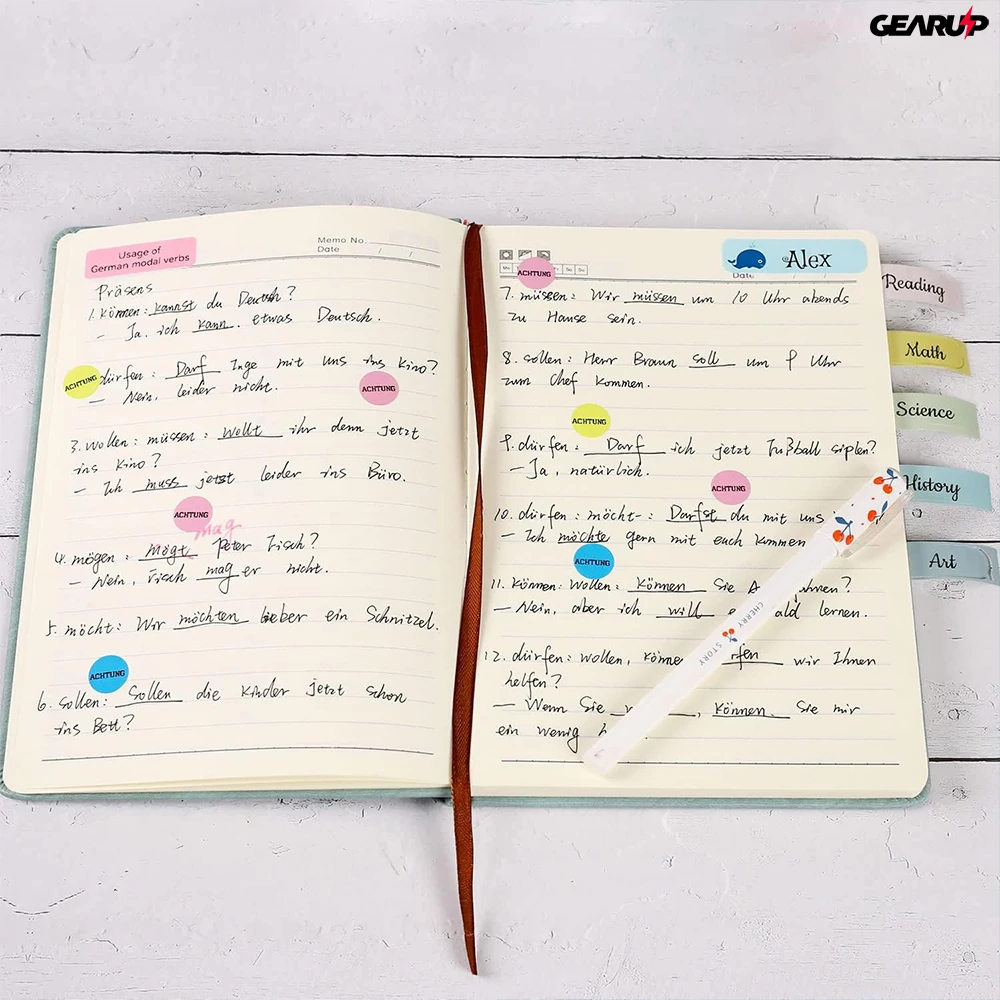 GEARUP
Usage of
German modal verbs
Memo No.
Date / /
Präsens
1. können: kannst du Deutsch?
- Ja, ich kann etwas Deutsch.
ACHTUNG
dürfen: Darf Inge mit uns ins Kino?
- Nein, leider nicht.
ACHTUNG
3. wollen: müssen: wollt ihr denn jetzt
ins Kino?
- Ich muss jetzt leider ins Büro.
ACHTUNG
mag
4. mögen: mögt Peter Fisch?
- Nein, Fisch mag er nicht.
5. möcht: Wir möchten lieber ein Schnitzel.
ACHTUNG
6. sollen: Sollen die Kinder jetzt schon
ins Bett?
Alex
Date / /
Mo Fr Sa Su
ACHTUNG
7. müssen: Wir müssen um 10 Uhr abends
zu Hause sein.
8. sollen: Herr Braun soll um 9 Uhr
zum Chef kommen.
ACHTUNG
9. dürfen: Darf ich jetzt Fußball siplen?
- Ja, natürlich.
ACHTUNG
10. dürfen: möcht-: Darfst du mit uns
- Ich möchte gern mit euch kommen
ACHTUNG
11. können: wollen: können Sie
- Nein, aber ich will lernen.
12. dürfen: wollen, könne rfen wir Ihnen
helfen?
- Wenn Sie , können Sie mir
ein wenig
CHERRY STORY
Reading
Math
Science
History
Art